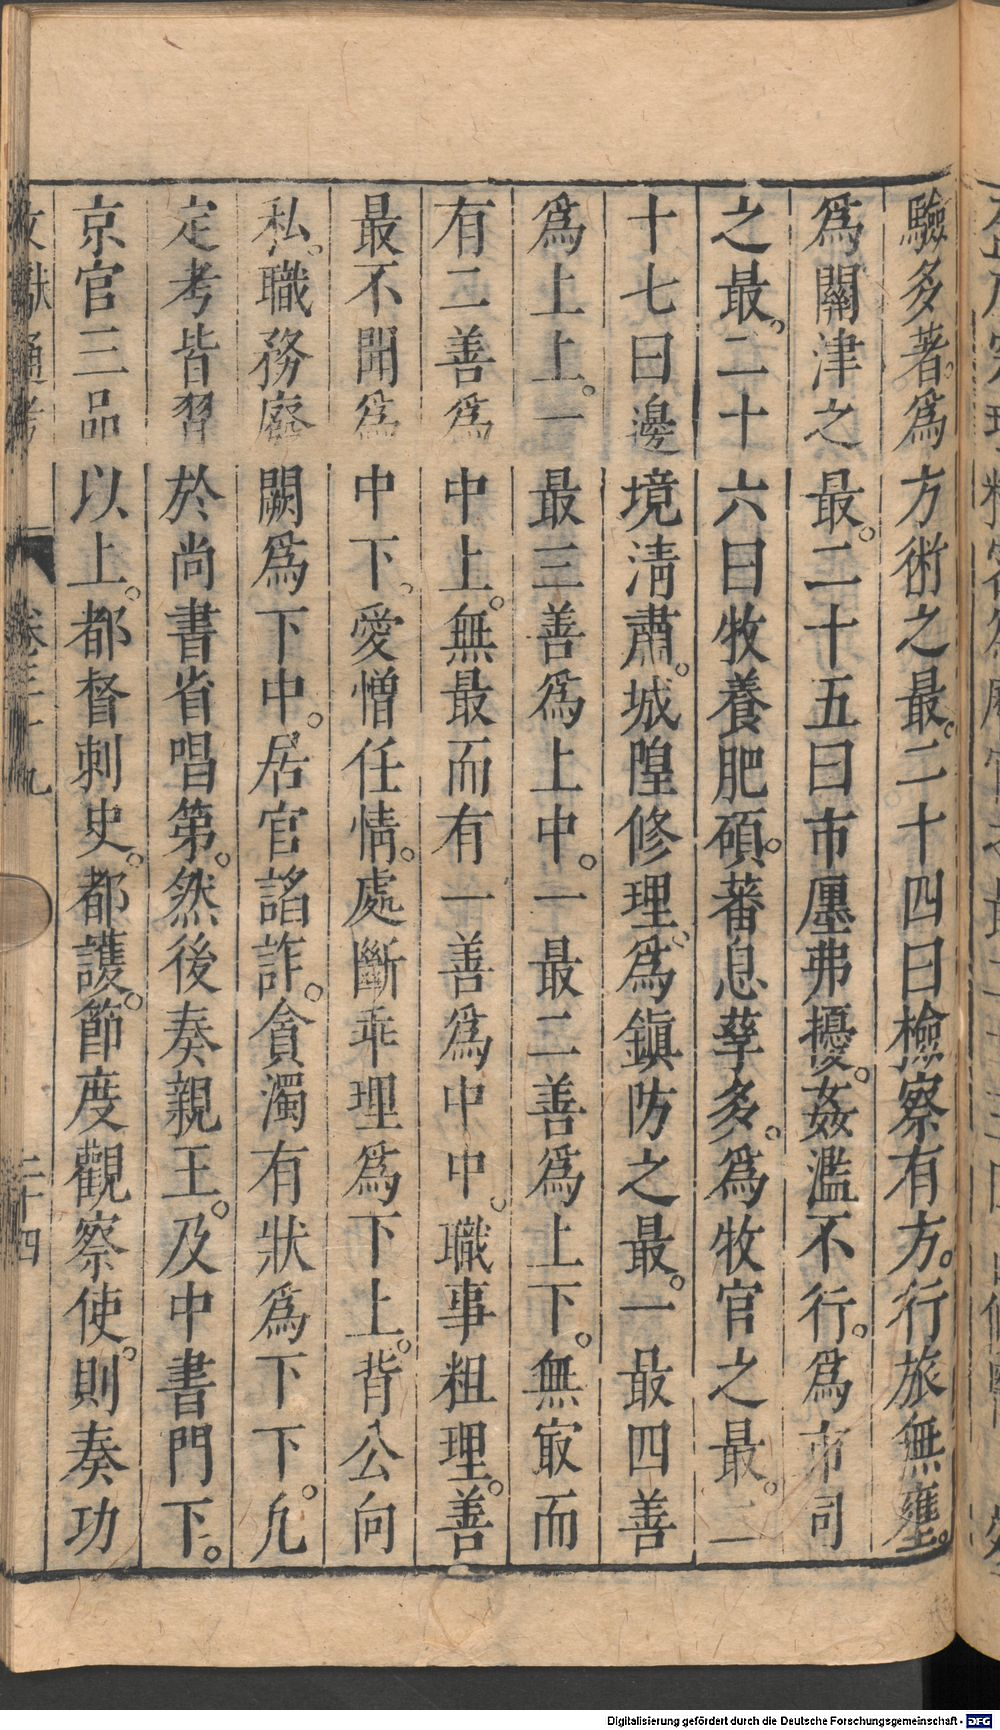 驗多著。爲方術之最。二十四曰檢察有方。行旅無壅。
爲關津之最。二十五曰市廛弗擾。姦濫不行。爲市司
之最。二十六曰牧養肥碩。蕃息孳多。爲牧官之最。二
十七曰邊境淸肅。城隍修理。爲鎭防之最。一最四善
爲上上。一最三善爲上中。一最二善爲上下。無㝡而
有二善爲中上。無最而有一善爲中中。職事粗理。善
最不聞爲中下。愛憎任情。處斷乖理爲下上。背公向
私。職務廢闕爲下中。居官諂詐。貪濁有狀爲下下。凡
定考皆習於尚書省唱第。然後奏親王。及中書門下。
京官三品以上。都督刺史。都護。節度觀察使。則奏功
文獻通考 卷三十九 二十四
Digitalisierung gefördert durch die Deutsche Forschungsgemeinschaft - DFG